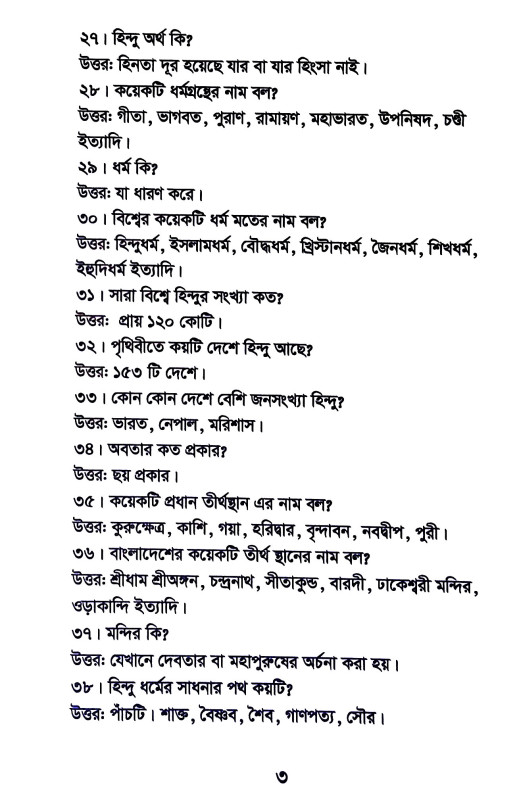 ২৭। হিন্দু অর্থ কি?
উত্তর: হিনতা দূর হয়েছে যার বা যার হিংসা নাই।
২৮। কয়েকটি ধর্মগ্রন্থের নাম বল?
উত্তর: গীতা, ভাগবত, পুরাণ, রামায়ণ, মহাভারত, উপনিষদ, চণ্ডী
ইত্যাদি।
২৯। ধর্ম কি?
উত্তর: যা ধারণ করে।
৩০। বিশ্বের কয়েকটি ধর্ম মতের নাম বল?
উত্তর: হিন্দুধর্ম, ইসলামধর্ম, বৌদ্ধধর্ম, খ্রিস্টানধর্ম, জৈনধর্ম, শিখধর্ম,
ইহুদিধর্ম ইত্যাদি।
৩১। সারা বিশ্বে হিন্দুর সংখ্যা কত?
উত্তর: প্রায় ১২০ কোটি।
৩২। পৃথিবীতে কয়টি দেশে হিন্দু আছে?
উত্তর: ১৫৩ টি দেশে।
৩৩। কোন কোন দেশে বেশি জনসংখ্যা হিন্দু?
উত্তর: ভারত, নেপাল, মরিশাস।
৩৪। অবতার কত প্রকার?
উত্তর: ছয় প্রকার।
৩৫। কয়েকটি প্রধান তীর্থস্থান এর নাম বল?
উত্তর: কুরুক্ষেত্র, কাশি, গয়া, হরিদ্বার, বৃন্দাবন, নবদ্বীপ, পুরী।
৩৬। বাংলাদেশের কয়েকটি তীর্থ স্থানের নাম বল?
উত্তর: শ্রীধাম শ্রীঅঙ্গন, চন্দ্রনাথ, সীতাকুন্ড, বারদী, ঢাকেশ্বরী মন্দির,
ওড়াকান্দি ইত্যাদি।
৩৭। মন্দির কি?
উত্তর: যেখানে দেবতার বা মহাপুরুষের অর্চনা করা হয়।
৩৮। হিন্দু ধর্মের সাধনার পথ কয়টি?
উত্তর: পাঁচটি। শাক্ত, বৈষ্ণব, শৈব, গাণপত্য, সৌর।
৩